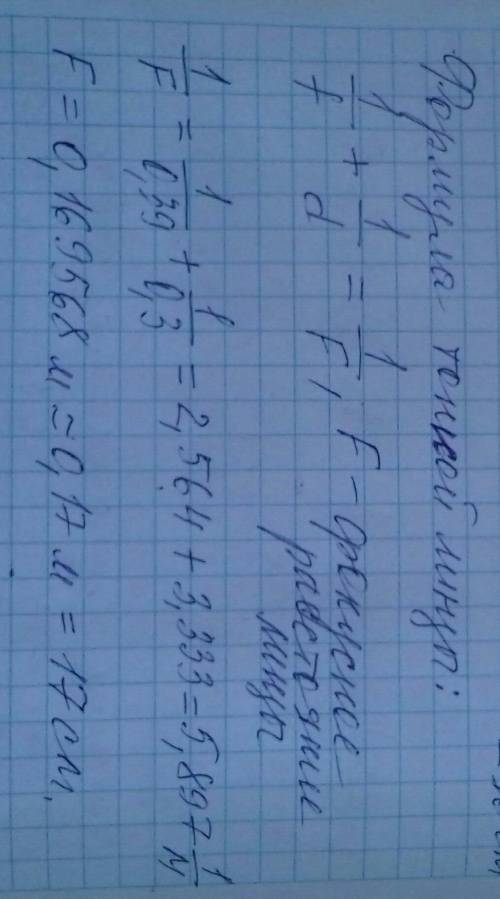 Формула тонкой линзы:
1/f + 1/d = 1/F, F - фокусное
расстояние
линзы
1/F = 1/0,39 + 1/0,3 = 2,564 + 3,333 = 5,897 1/м
F = 0,169568 м ≃ 0,17 м = 17 см.